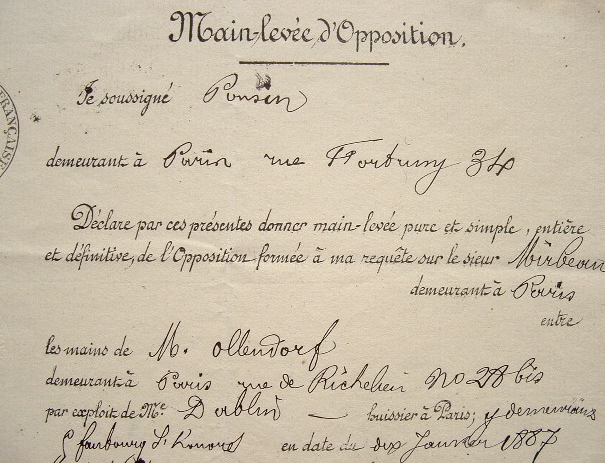 Main-levée d'Opposition.
FRANÇAISE
Je soussigné Ponsin
demeurant à Paris rue Fortuny 34
Déclare par ces présentes donner main-levée pure et simple, entière
et définitive, de l'Opposition formée à ma requête sur le sieur Mirbeau
demeurant à Paris
entre
les mains de M. Ollendorf
demeurant à Paris rue de Richelieu no 28 bis
par exploit de Me. Dablin — huissier à Paris; y demeurant
faubourg St Honoré en date du dix Janvier 1887